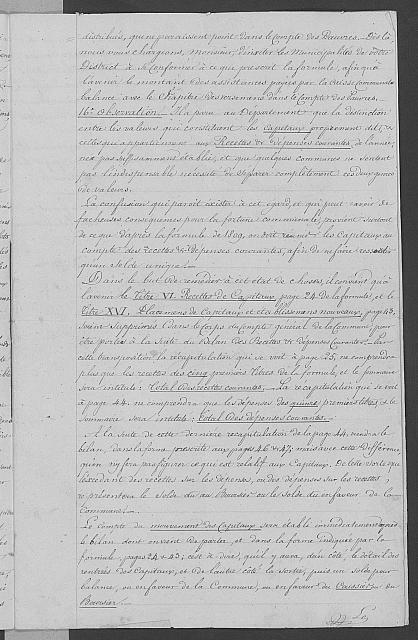 distribués, qui ne paraissent point dans le Compte des Pauvres. Dès là
nous vous chargeons, Monsieur, d'inviter les Municipalités de votre
District à se conformer à ce que prescrit la formule, afin qu'à
l'avenir le montant des assistances payées par la Caisse Communale
balance avec le Chapitre des versemens dans le Compte des Pauvres.
16e Observation. Il a paru au Département que la distinction
entre les valeurs que constituent les Capitaux proprement dits, &
celles qui appartiennent aux Recettes & Dépenses courantes de l'année,
n'est pas suffisamment établie, et que quelques communes ne sentent
pas l'indispensable nécessité de séparer complètement ces deux genres
de valeurs.
La confusion qui paroît exister à cet égard, et qui peut avoir de
facheuses conséquences pour la fortune communale, provient surtout
de ce que d'après la formule de 1809, on doit réunir les Capitaux au
compte des recettes & dépenses courantes, afin de ne faire ressortir
qu'un solde unique.
Dans le but de remédier à cet état de choses, il convient qu'à
l'avenir le Titre VI. Recettes de Capitaux, page 24 de la formule, et le
Titre XVI, Placemens de Capitaux et établissemens nouveaux, page 43,
soient supprimés dans le corps du Compte général de la Commune, pour
être portés à la Suite du Bilan des Recettes & Dépenses Courantes. Par
cette transposition la récapitulation qui se voit à page 25, ne comprendra
plus que les recettes des cinq premiers titres de la formule, et le sommaire
sera intitulé: Total des recettes courantes. La récapitulation qui se voit
à page 44, ne comprendra que les dépenses des quinze premiers titres & le
sommaire sera intitulé: Total des dépenses courantes.
A la suite de cette dernière récapitulation de la page 44, viendra le
bilan, dans la forme prescrite aux pages 46 & 47; mais avec cette différence,
qu'on n'y fera pas figurer ce qui est relatif aux Capitaux. De telle sorte que
l'excédent des recettes sur les dépenses, ou des dépenses sur les recettes,
représentera le solde dû au Boursier ou le solde dû en faveur de la
Commune.
Le compte du mouvement des Capitaux sera établi immédiatement après
le bilan dont on vient de parler, et dans la forme indiquée par la
formule, pages 24 & 43; c'est à dire, qu'il y aura, d'un côté le détail des
rentrées des Capitaux, et de l'autre côté la sortie, puis un solde pour
balance, ou en faveur de la Commune, ou en faveur du Caissier ou
Boursier.